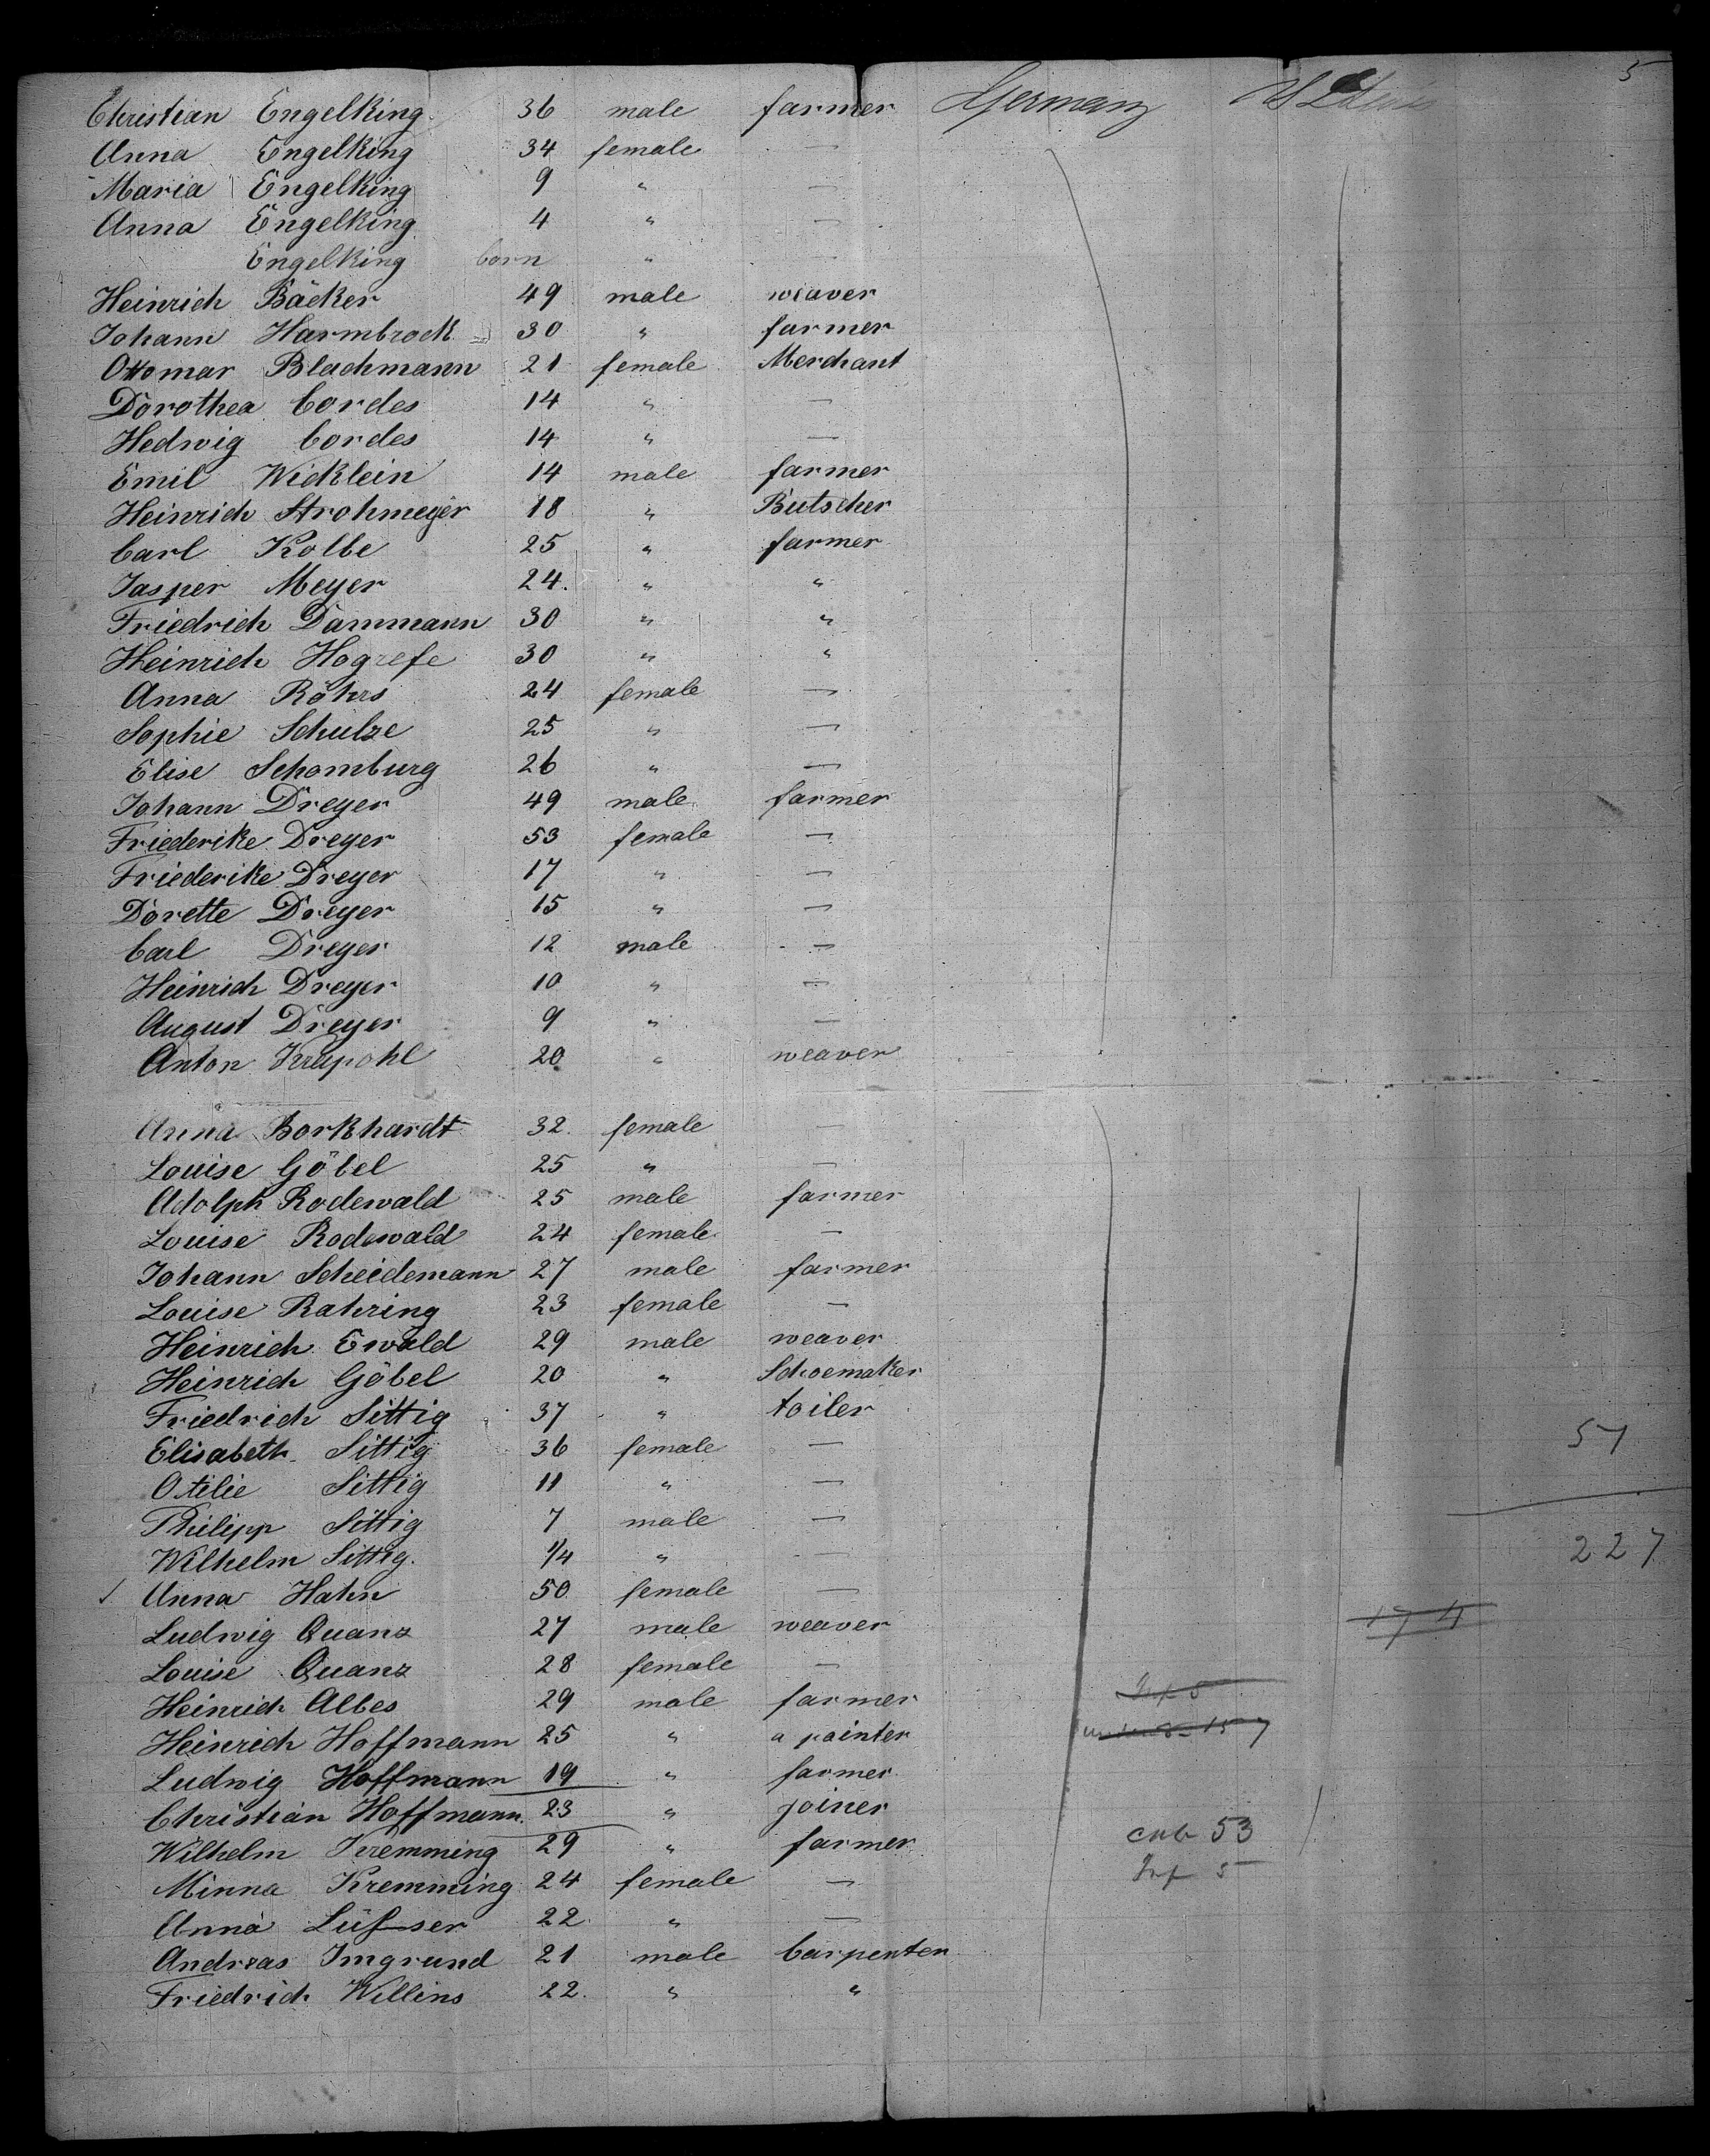 5
Christian Engelking 36 male farmer Germany U States
Anna Engelking 34 female —
Maria Engelking 9 " —
Anna Engelking 4 " —
Engelking born "
Heinrich Bäcker 49 male weaver
Johann Harmbrock 30 " farmer
Ottomar Blachmann 21 female Merchant
Dorothea Cordes 14 " —
Hedwig Cordes 14 " —
Emil Wicklein 14 male farmer
Heinrich Strohmeyer 18 " Butscher
Carl Kolbe 25 " farmer
Jasper Meyer 24. " "
Friedrich Dammann 30 " "
Heinrich Hogrefe 30 " "
Anna Röhrs 24 female —
Sophie Schulze 25 " —
Elise Schomburg 26 " —
Johann Dreyer 49 male farmer
Friederike Dreyer 53 female —
Friederike Dreyer 17 " —
Dorette Dreyer 15 " —
Carl Dreyer 12 male —
Heinrich Dreyer 10 " —
August Dreyer 9 " —
Anton Krapohl 20 " weaver
Anna Borkhardt 32. female
Louise Göbel 25 " —
Adolph Rodewald 25 male farmer
Louise Rodewald 24 female —
Johann Scheidemann 27 male farmer
Louise Rahring 23 female —
Heinrich Ewald 29 male weaver
Heinrich Göbel 20 " Schoemaker
Friedrich Sittig 37 " toiler
Elisabeth Sittig 36 female — 57
Otilie Sittig 11 " —
Philipp Sittig 7 male —
Wilhelm Sittig. 1/4 " — 227
Anna Hahn 50 female —
Ludwig Quanz 27 male weaver 174
Louise Quanz 28 female —
Heinrich Albes 29 male farmer Inf 5
Heinrich Hoffmann 25 " a painter
Ludwig Hoffmann 19 " farmer
Christian Hoffmann. 23 " joiner
Wilhelm Kremming 29 " farmer 53
Minna Kremming 24 female — Inf 5
Anna Lüßser 22. " —
Andreas Imgrund 21 male Carpenter
Friedrich Willins 22. " "